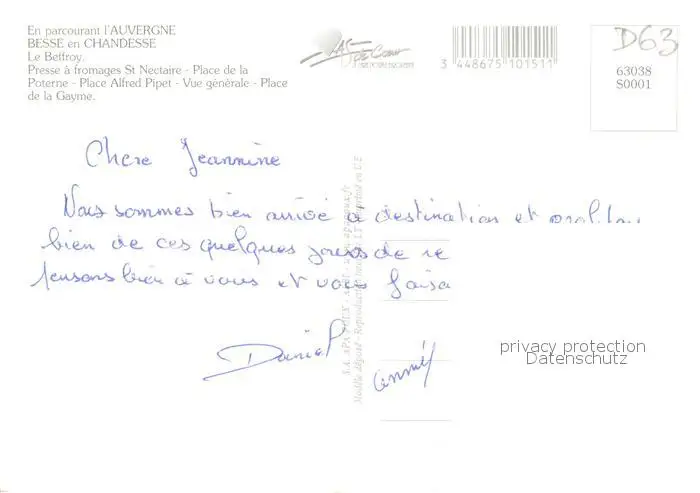 En parcourant l'AUVERGNE
BESSE en CHANDESSE
Le Beffroy.
Presse à fromages St Nectaire - Place de la
Poterne - Place Alfred Pipet - Vue générale - Place
de la Gayme.
3 448675 101511
D63
63038
S0001
Chere Jeannine
Nous sommes bien arrivé à destination et
bien de ces quelques jours de re
pensons bien à vous et vous faisa
Daniel
privacy protection
Datenschutz